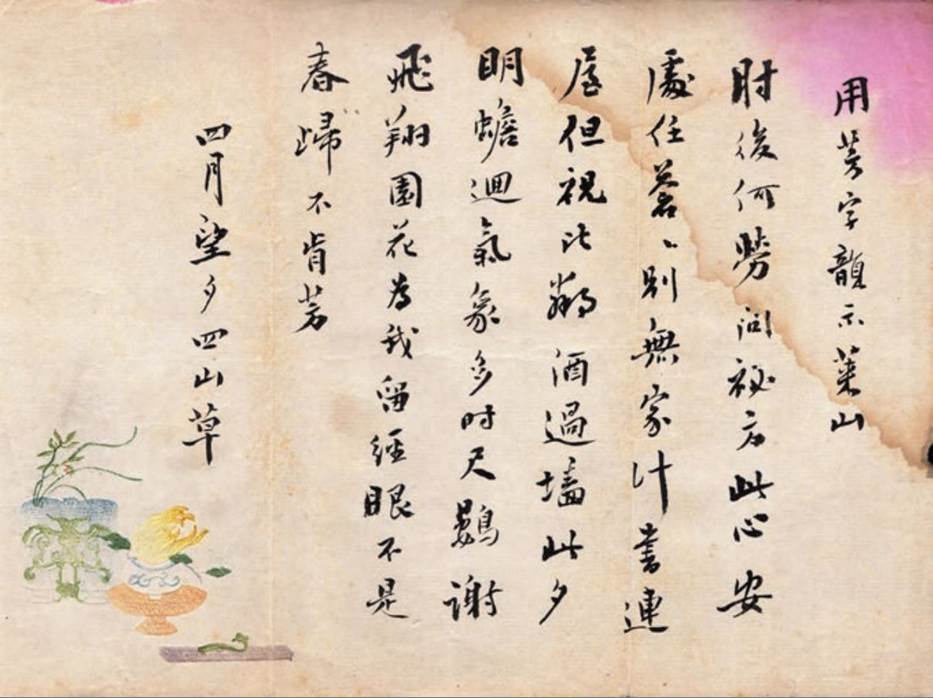 用芳字韻示萊山
肘後何勞問祕方此心安
處任蒼〻別無家計書連
屋但視比鄰酒過墻此夕
明蟾迴氣象多时尺鷃謝
飛翔園花為我留經眼不是
春歸不肯芳
四月望夕四山草